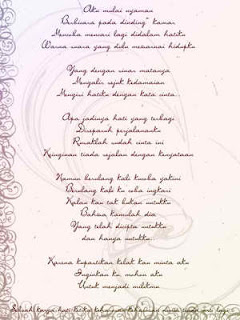 Aku mulai nyaman
Berbicara pada dinding" kamar
Mencoba mencari lagi didalam hatiku
Warna warna yang dulu mewarnai hidupku
Yang dengan sinar matanya
Mengalir sejuk kedamaian
Mengisi hatiku dengan kata cinta
Apa jadinya hati yang terbagi
Disepanjang perjalananku
Rusaklah sudah cinta ini
Keinginan tiada sejalan dengan kenyataan
Namun berulang kali kucoba yakini
Berulang kali ku coba ingkari
Kalau kau tak bukan untukku
Bahwa kamulah dia
Yang telah dicipta untukku
dan hanya untukku
Karena kupastikan telah kau minta aku
Inginkan ku mohon aku
Untuk menjadi milikmu